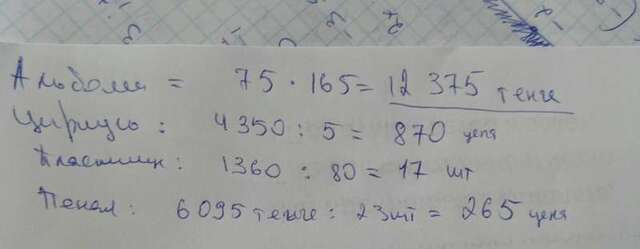 Альбом = 75 · 165 = 12 375 тенге
Циркуль : 4350 : 5 = 870 цена
Пластилин : 1360 : 80 = 17 шт
Пенал : 6095 тенге : 23 шт = 265 цена